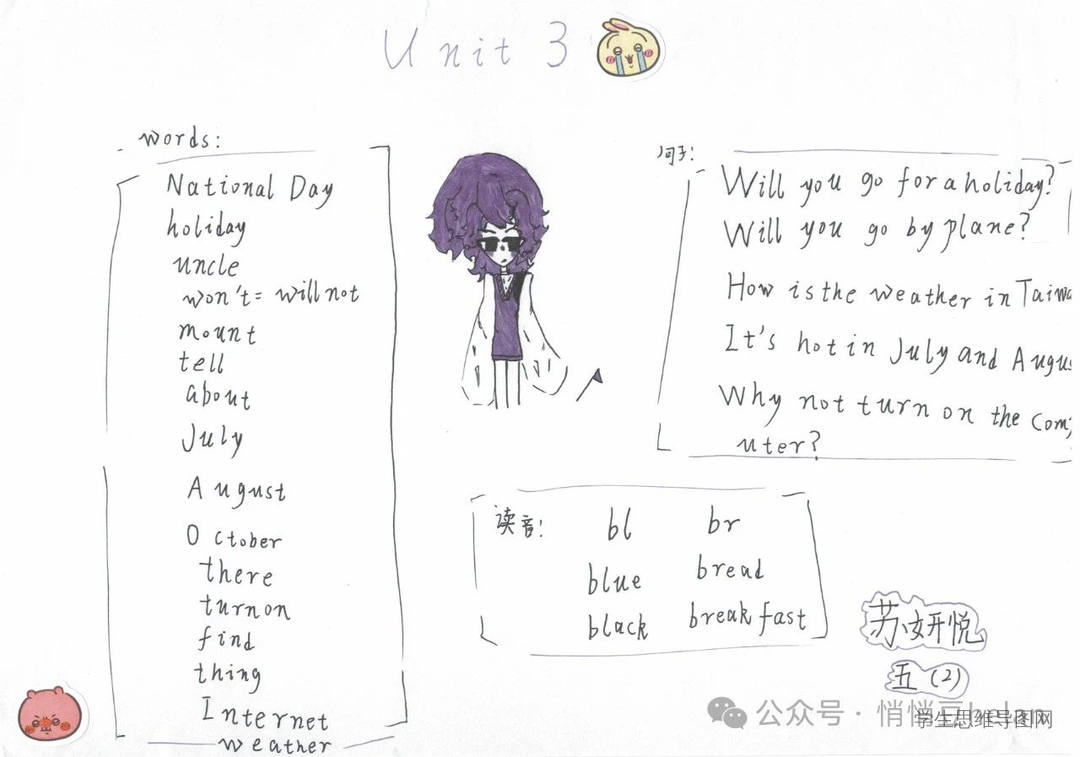 Unit 3
words:
National Day
holiday
uncle
won't = will not
mount
tell
about
July
August
October
there
turn on
find
thing
Internet
weather
句子:
Will you go for a holiday?
Will you go by plane?
How is the weather in Taiwa
It's hot in July and Augus
Why not turn on the comp
uter?
读音:
bl br
blue bread
black breakfast
苏妍悦
五(2)
公众号·悄悄
学生思维导图网